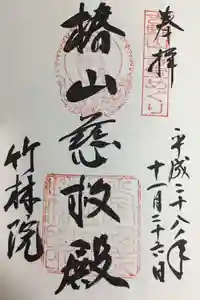 奉拝
平成二十八年
十一月二十六日
椿山慈救殿
竹林院